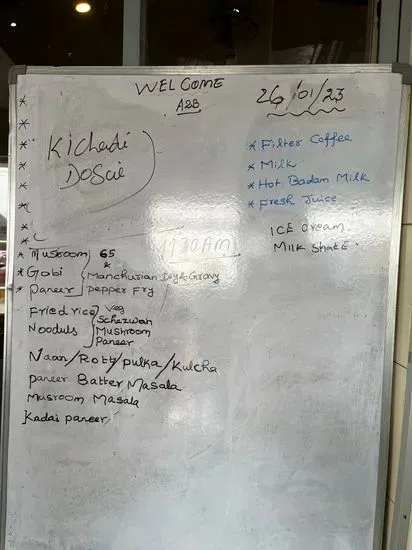 WELCOME
A2B
26/01/23
Kichadi
DOSai
* Filter Coffee
* Milk
* Hot Badam Milk
* Fresh Juice
ICE CREAM.
MILK SHAKE.
11:30AM
* Musroom 65 &
* Gobi Manchurian Dry & Gravy
* Paneer pepper Fry
Fried rice Veg
Nooduls Schezwan
Mushroom
Paneer
Naan/Roti/pulka/Kulcha
paneer Batter Masala
Musroom Masala
Kadai paneer